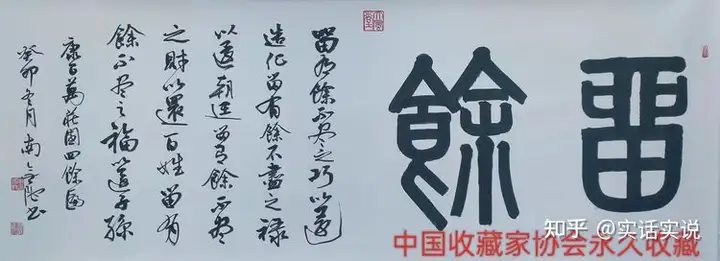 留餘
留有餘不尽之巧以還
造化留有餘不盡之禄
以還朝廷留有餘不尽
之財以還百姓留有
餘不尽之福還子孫
康百萬莊園留餘匾
癸卯冬月南書
中国收藏家协会永久收藏
知乎 @实话实说